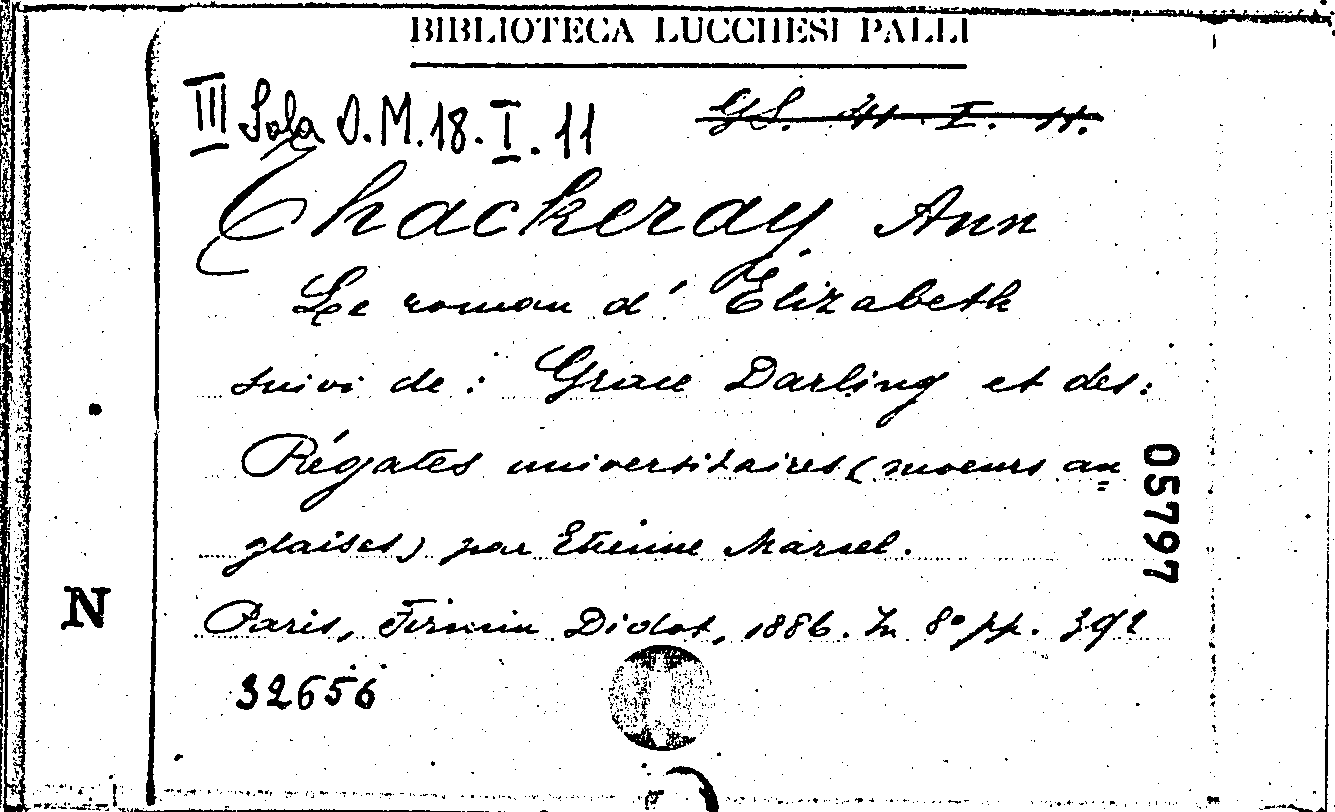 BIBLIOTECA LUCCHESI PALLI
III Sala O.M.18.I.11 G S. 41. I. 11.
Thackeray Ann
Le roman d'Elizabeth
suivi de: Grace Darling et des:
Régates universitaires (moeurs an=
glaises) par Etienne Marcel.
05797
N
Paris, Firmin Didot, 1886. In 8° pp. 392
32656